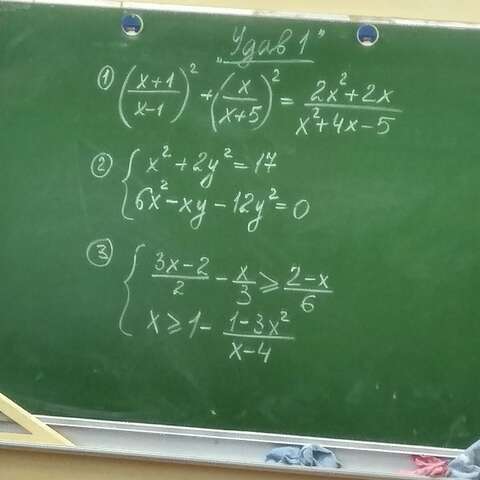 „Удав 1”
① ((x+1)/(x-1))² + (x/(x+5))² = (2x²+2x)/(x²+4x-5)
② { x²+2y²=17
6x²-xy-12y²=0
③ { (3x-2)/2 - x/3 ⩾ (2-x)/6
x⩾1- (1-3x²)/(x-4)